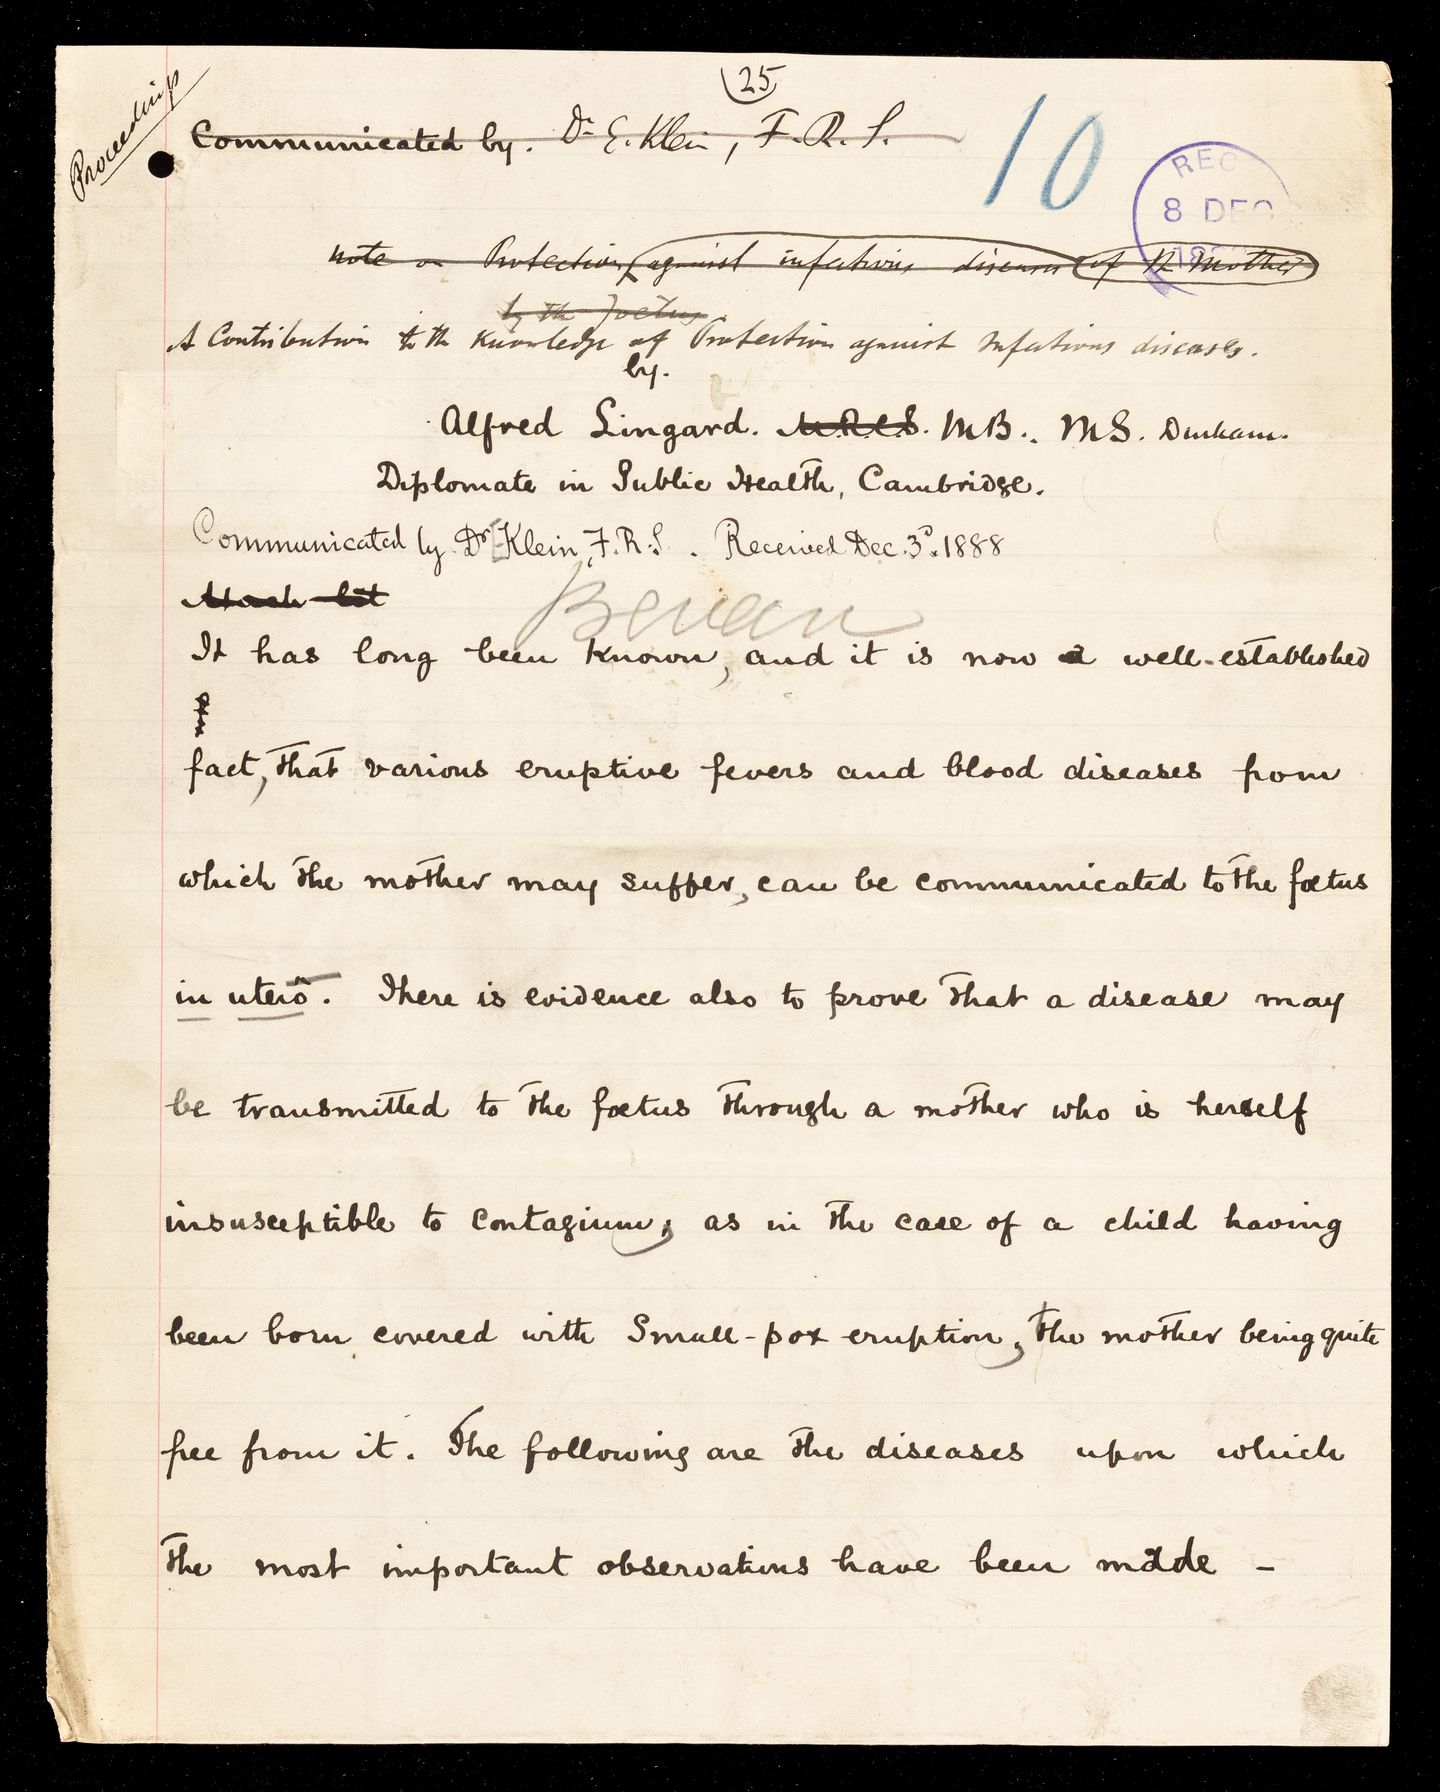 (25)
Proceedings
Communicated by. Dr E. Klein, F. R. S.
10
REC
8 DEC
note on Protection against infectious diseases of the Mother
by the foetus.
A Contribution to the Knowledge of Protection against Infectious diseases.
by.
Alfred Lingard. M.R.C.S. MB., MS. Durham.
Diplomate in Public Health, Cambridge.
Communicated by Dr E Klein, F.R.S. Received Dec. 3d. 1888
Bevan
It has long been known, and it is now a well-established
fact, that various eruptive fevers and blood diseases from
which the mother may suffer, can be communicated to the fœtus
in uterô. There is evidence also to prove that a disease may
be transmitted to the fœtus through a mother who is herself
insusceptible to contagium, as in the case of a child having
been born covered with Small-pox eruption, the mother being quite
free from it. The following are the diseases upon which
the most important observations have been made –